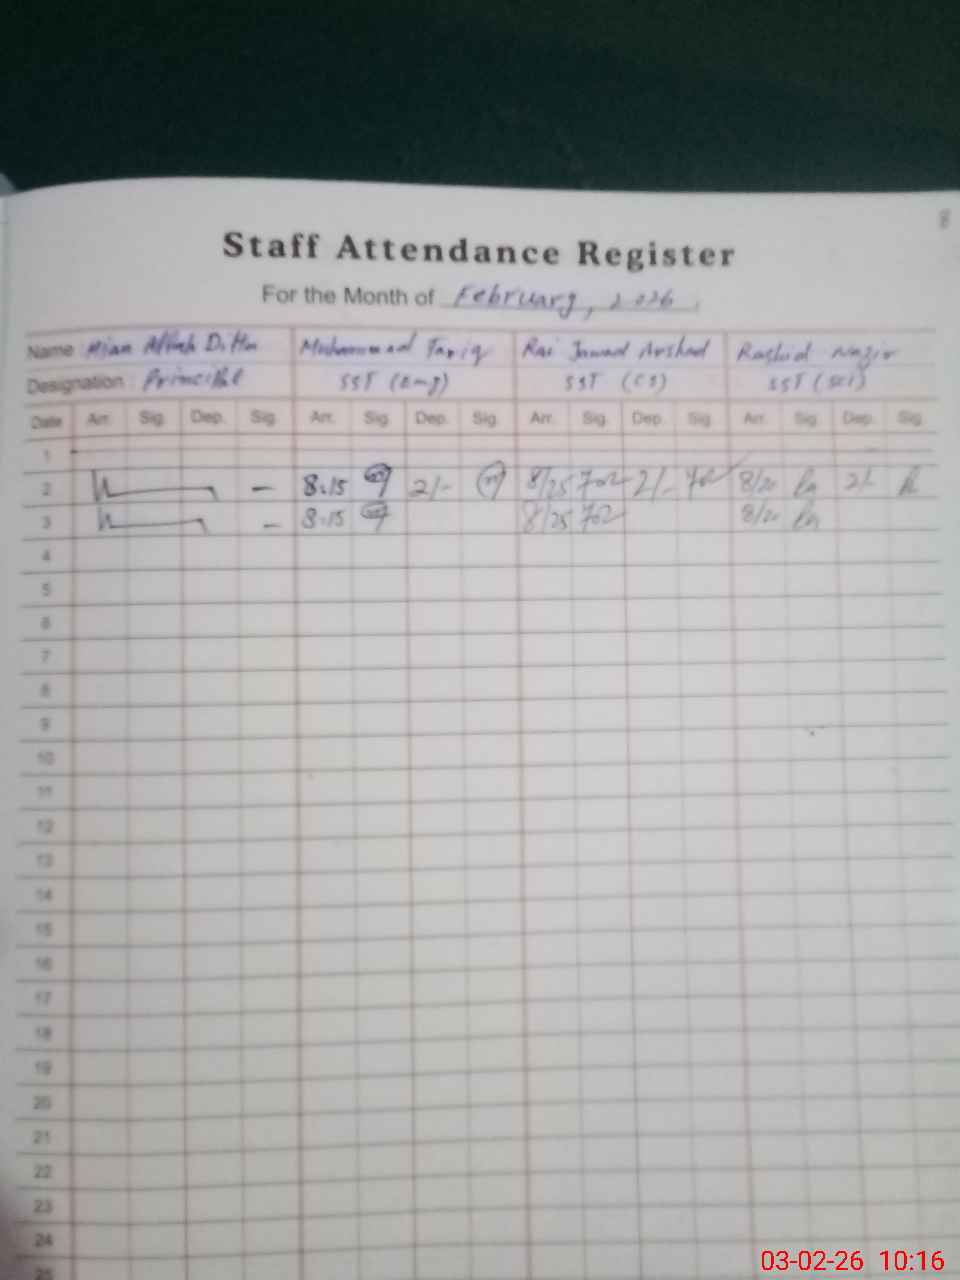 8
Staff Attendance Register
For the Month of February, 2026
Name Mian Allah Ditta Muhammad Tariq Rai Jawad Arshad Rashid Nazir
Designation Principal SST (Eng) SST (CS) SST (Sci)
Date Arr. Sig. Dep. Sig. Arr. Sig. Dep. Sig. Arr. Sig. Dep. Sig. Arr. Sig. Dep. Sig.
1
2 — 8:15 2/- 8/25 2/- 8/20 2/-
3 — 8:15 8/25 8/20
4
5
6
7
8
9
10
11
12
13
14
15
16
17
18
19
20
21
22
23
24
25
03-02-26 10:16